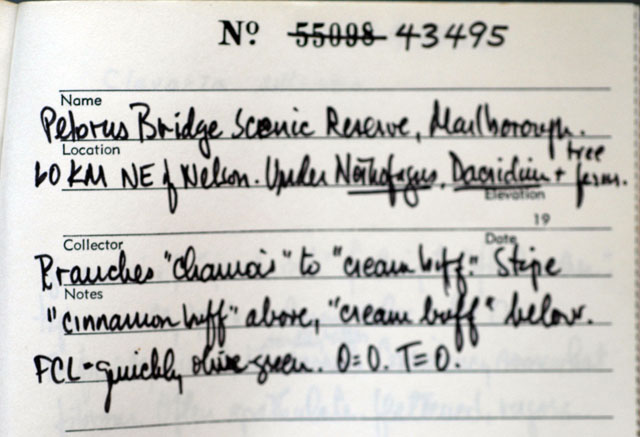 Nº 55098 43495
Name
Pelorus Bridge Scenic Reserve, Marlborough.
Location
60 KM NE of Nelson. Under Nothofagus, Dacridium + tree ferns.
Elevation
19
Collector
Date
Branches "chamois" to "cream buff." Stipe
Notes
"cinnamon buff" above, "cream buff" below.
FCL - quickly olive green. O=O. T=O.